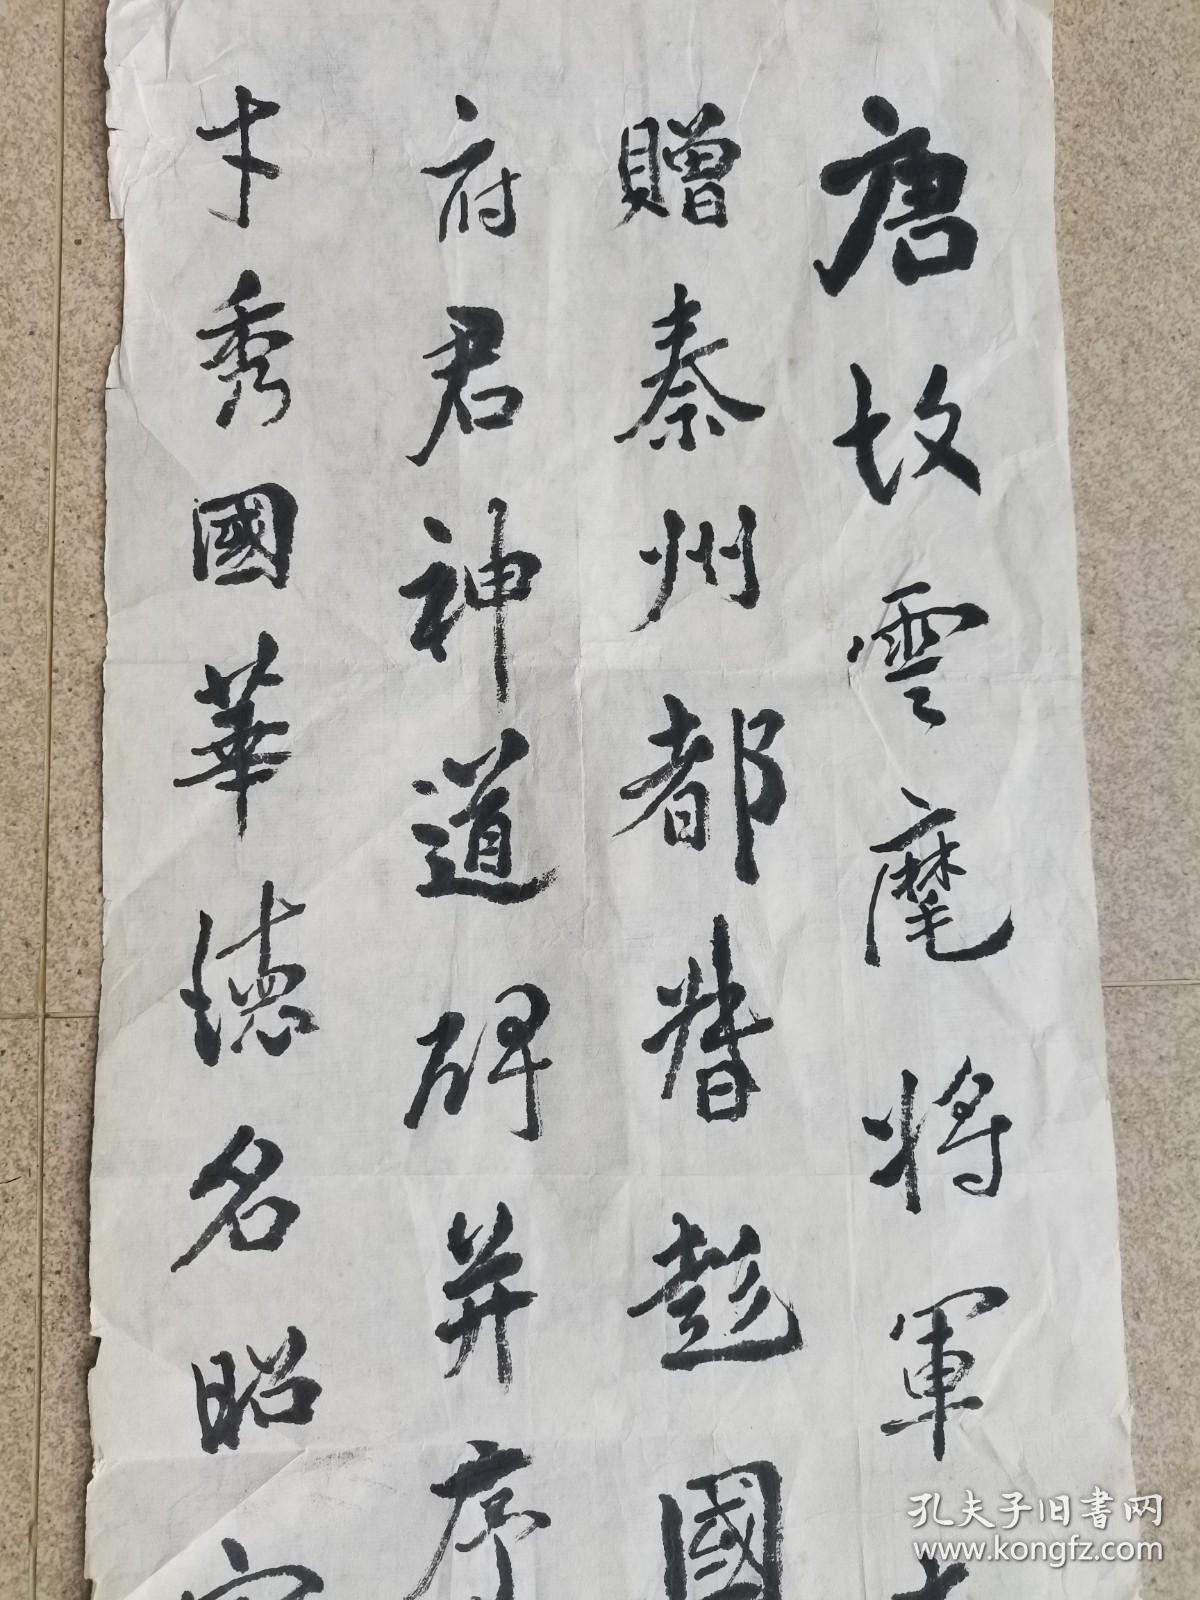 唐故雲麾将軍
贈秦州都督彭國
府君神道碑并序
才秀國華德名昭
孔夫子旧书网
www.kongfz.com